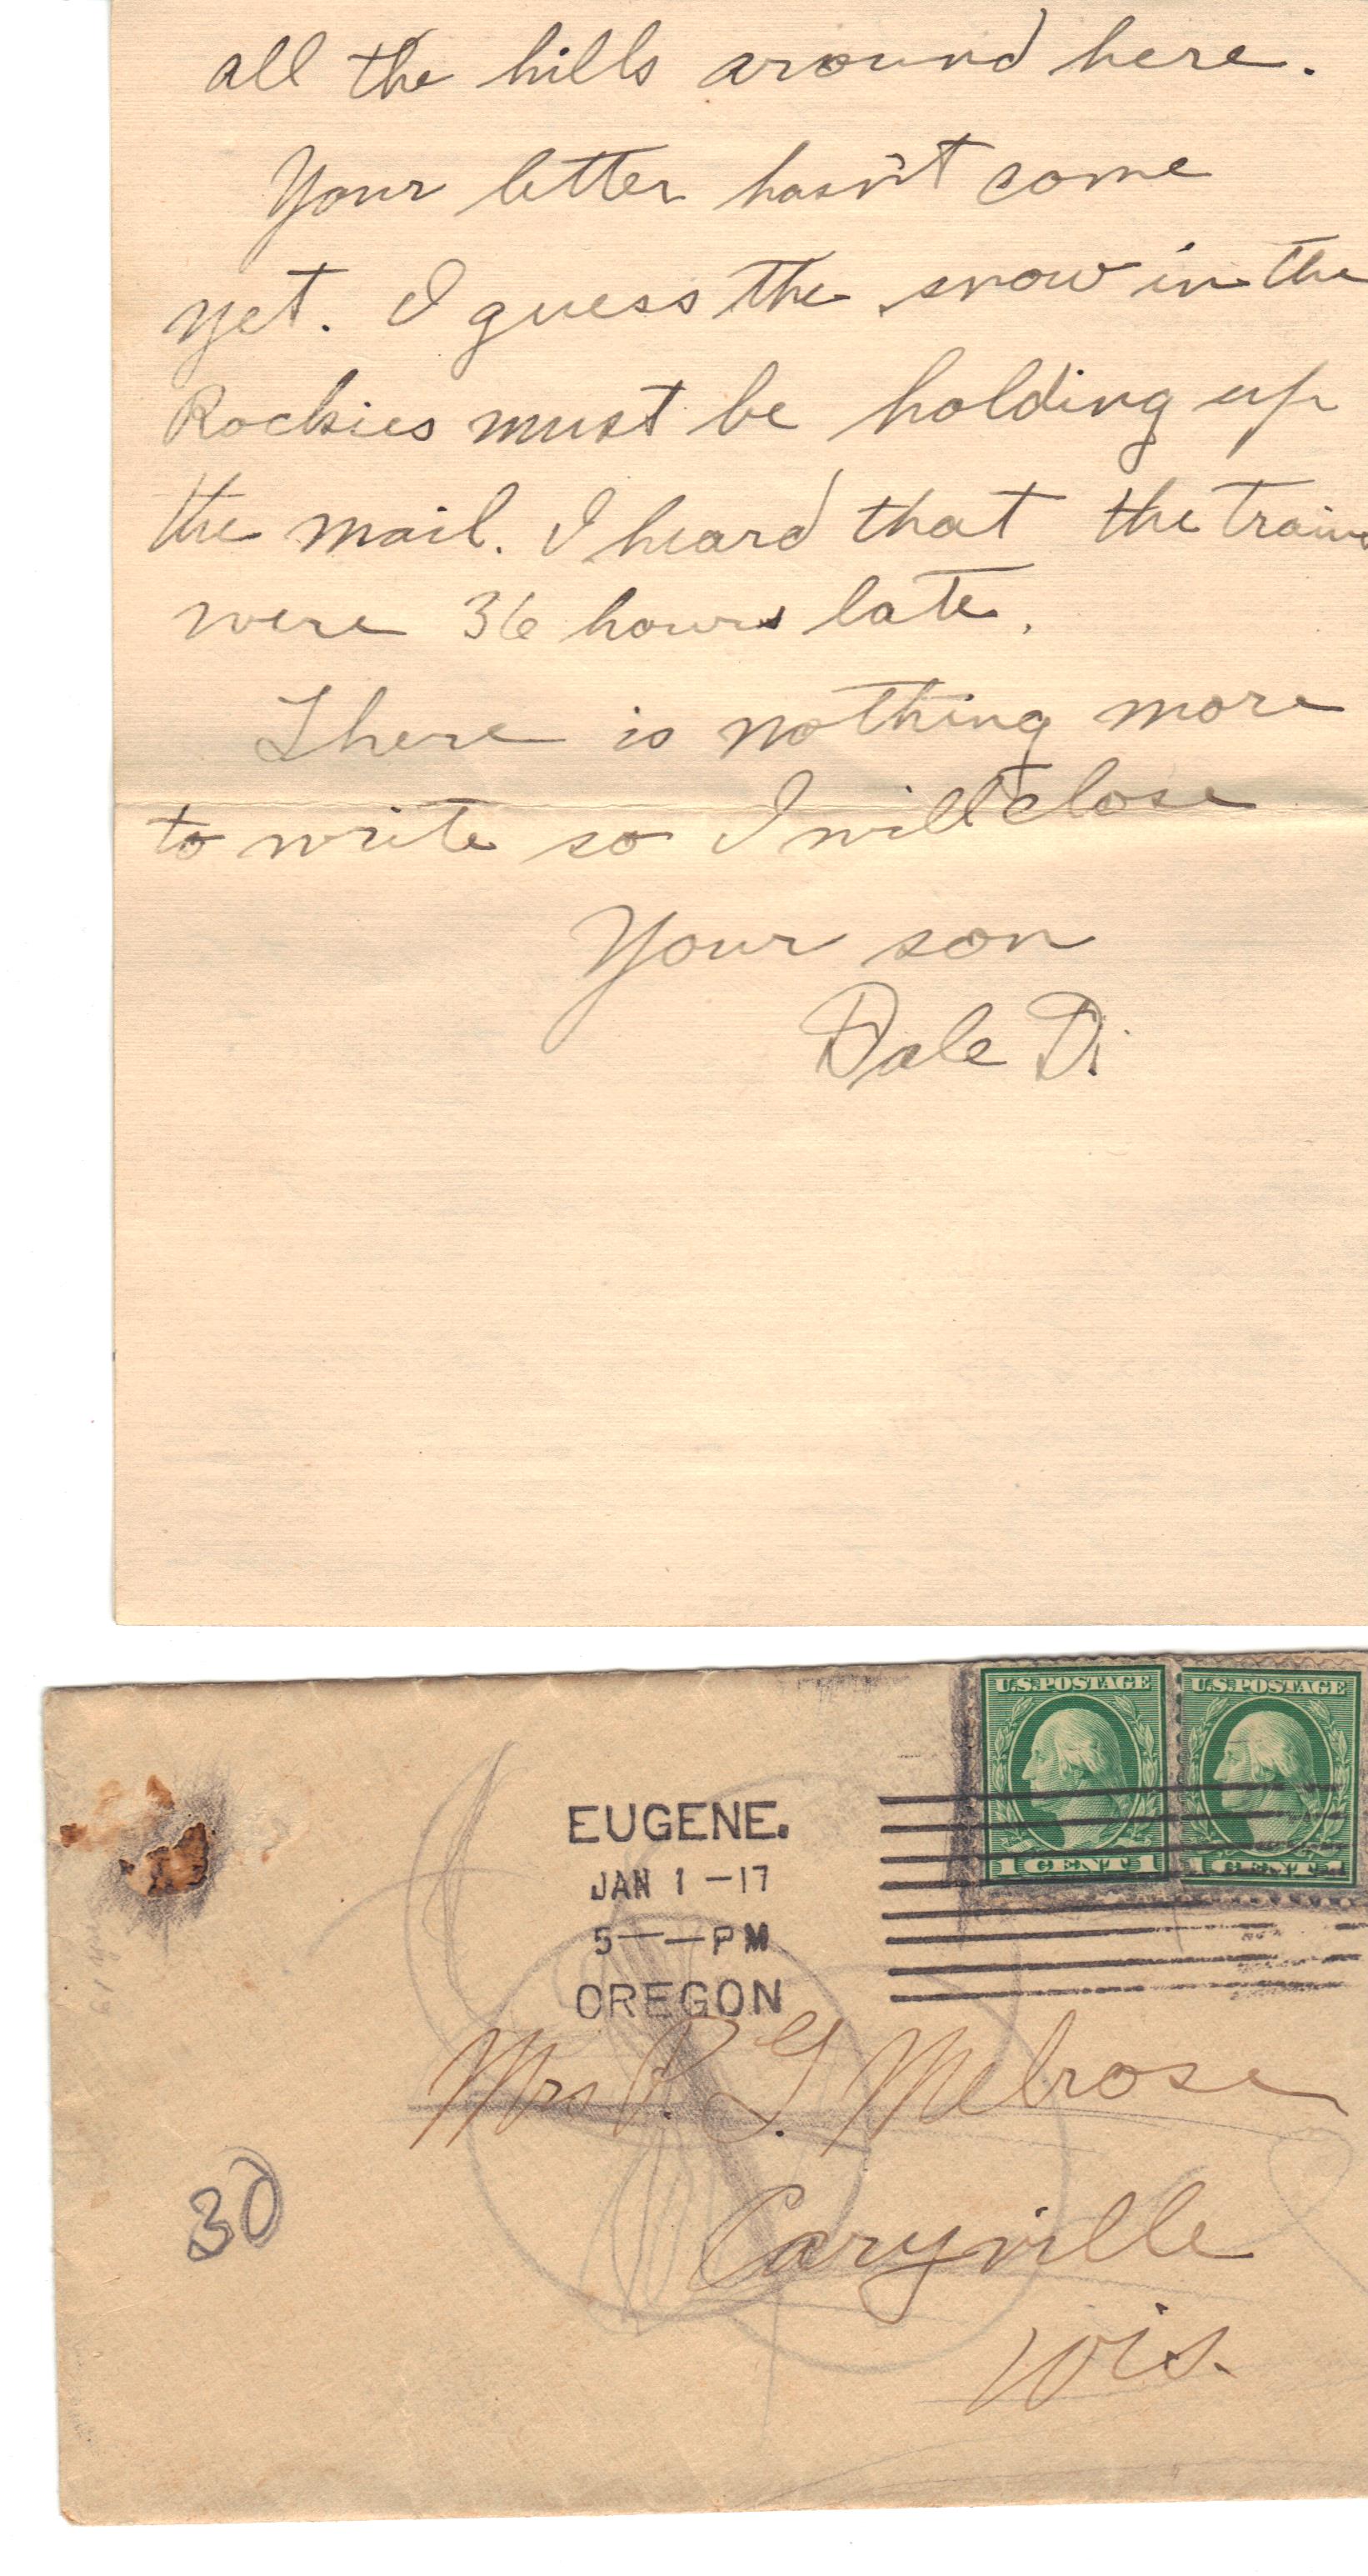 all the hills around here.
Your letter hasn't come
yet. I guess the snow in the
Rockies must be holding up
the mail. I heard that the trains
were 36 hours late.
There is nothing more
to write so I will close
Your son
Dale D.
U.S. POSTAGE U.S. POSTAGE
1 CENT 1 1 CENT 1
EUGENE.
JAN 1 -17
5 — — PM
OREGON
Mrs P. G. Melrose
Caryville
Wis.
30